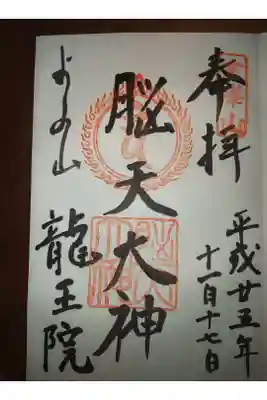 奉拝
平成廿五年
十一月十七日
脳天大神
よしの山
龍王院